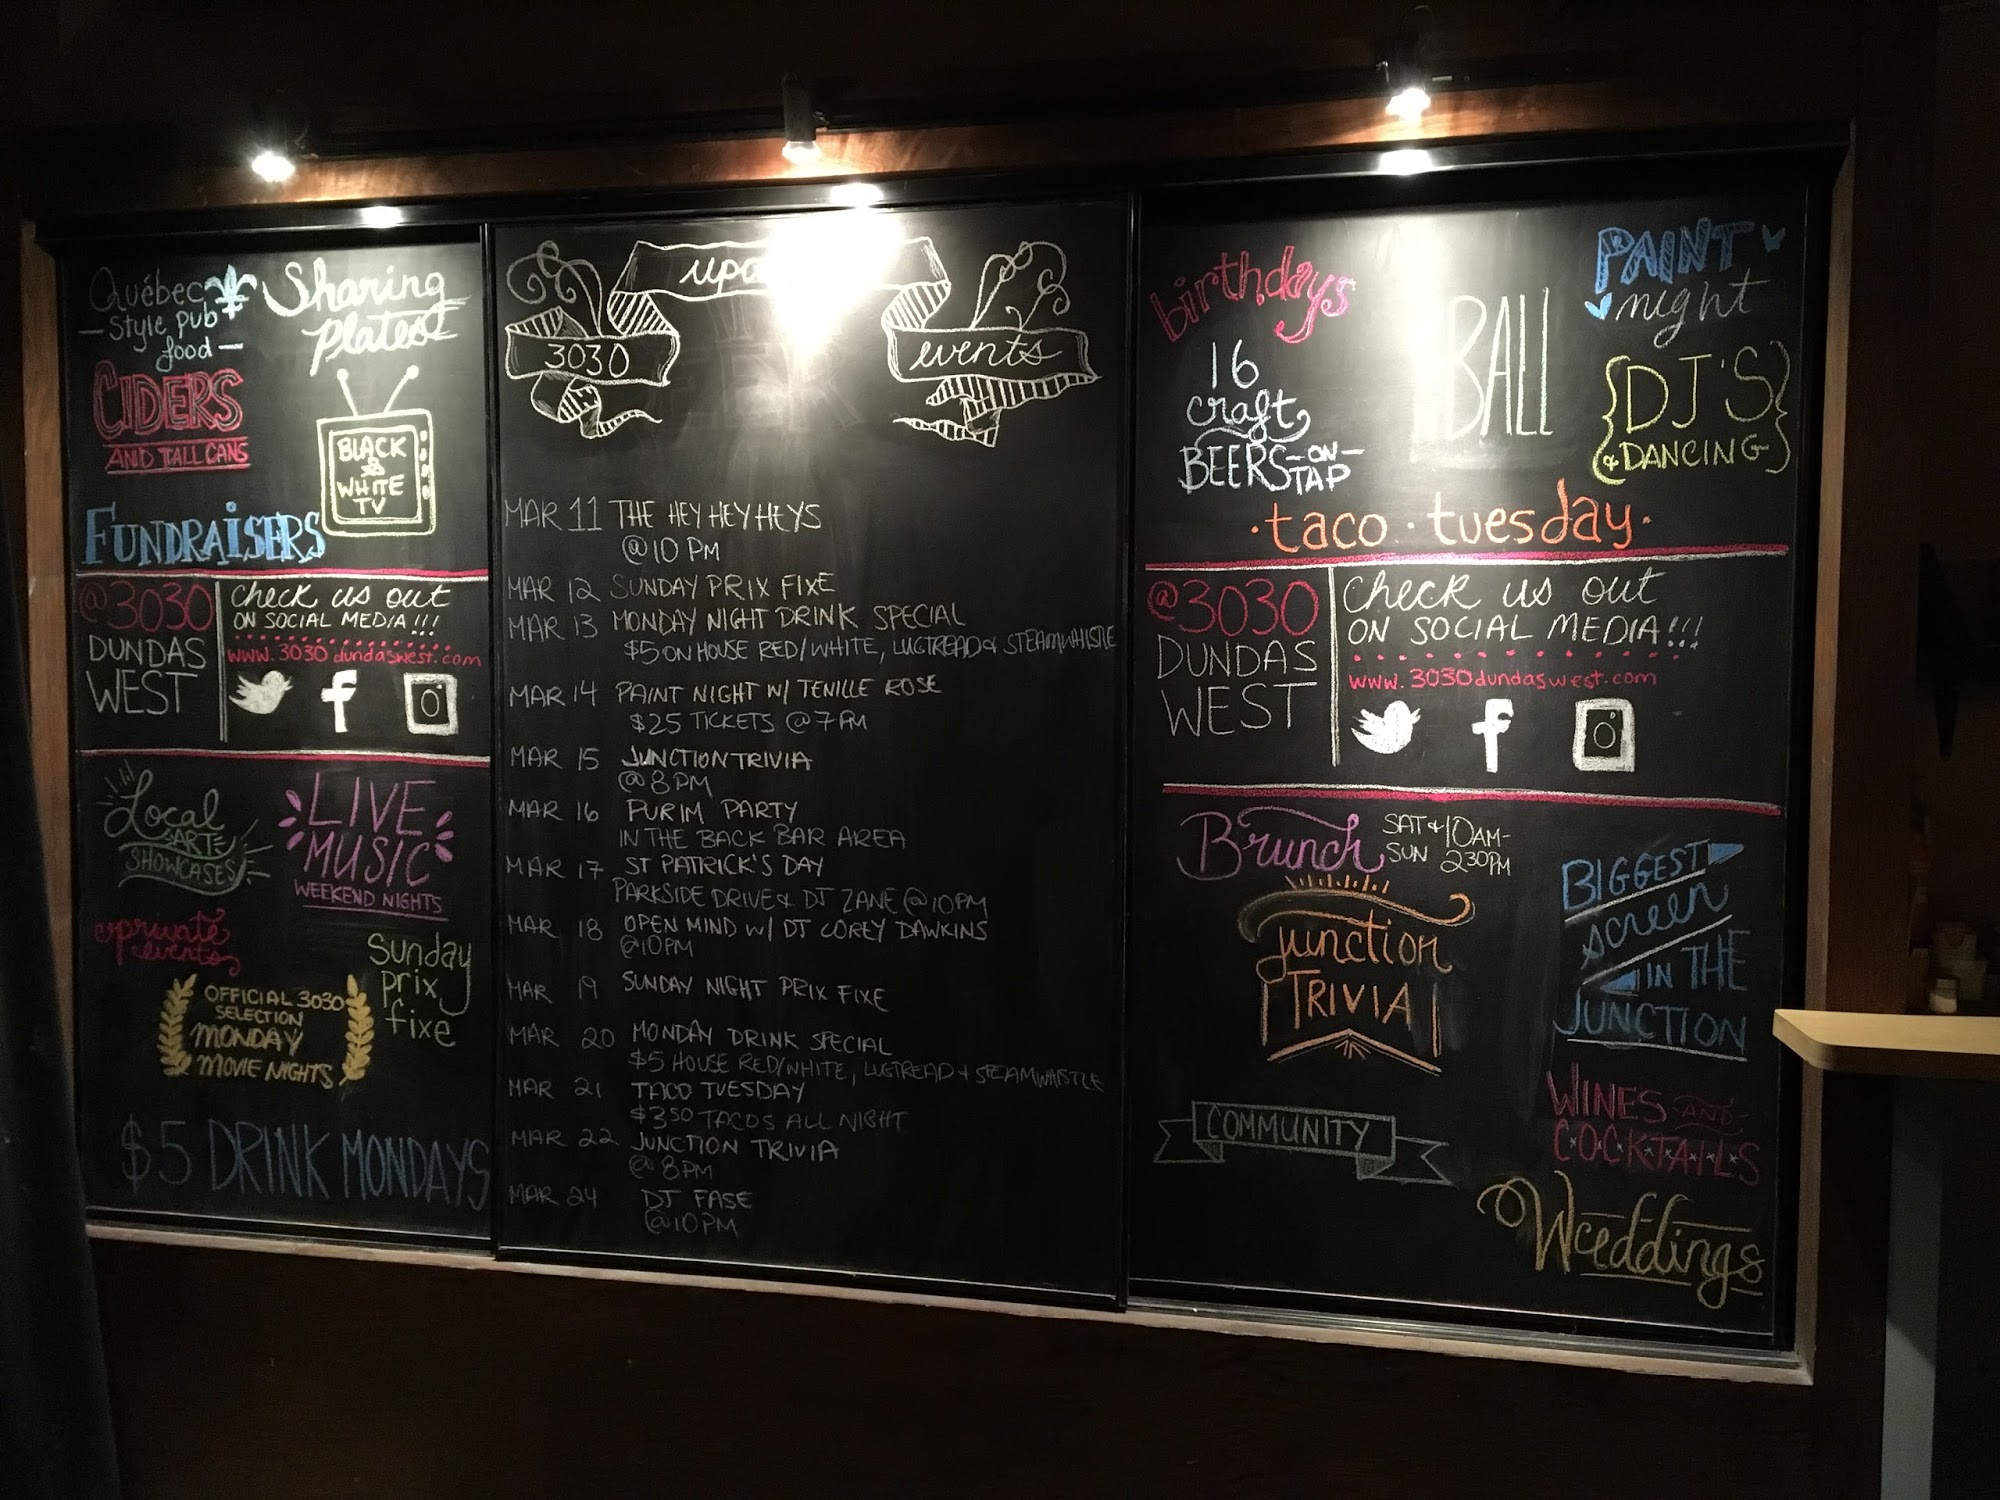 Québec
Style Pub
food
Sharing
Plates
CIDERS
AND TALL CANS
BLACK
&
WHITE
TV
FUNDRAISERS
@3030
DUNDAS
WEST
check us out
ON SOCIAL MEDIA!!!
www.3030dundaswest.com
Local
ART
SHOWCASES
LIVE
MUSIC
WEEKEND NIGHTS
private
events
Sunday
prix
fixe
OFFICIAL 3030
SELECTION
MONDAY
MOVIE NIGHTS
$5 DRINK MONDAYS
3030
events
MAR 11 THE HEY HEY HEYS
@10 PM
MAR 12 SUNDAY PRIX FIXE
MAR 13 MONDAY NIGHT DRINK SPECIAL
$5 ON HOUSE RED/WHITE, LUGTREAD & STEAMWHISTLE
MAR 14 PAINT NIGHT W/ TENILLE ROSE
$25 TICKETS @ 7 PM
MAR 15 JUNCTION TRIVIA
@ 8 PM
MAR 16 PURIM PARTY
IN THE BACK BAR AREA
MAR 17 ST PATRICK'S DAY
PARKSIDE DRIVE & DJ ZANE @ 10PM
MAR 18 OPEN MIND W/ DJ COREY DAWKINS
@10PM
MAR 19 SUNDAY NIGHT PRIX FIXE
MAR 20 MONDAY DRINK SPECIAL
$5 HOUSE RED/WHITE, LUGTREAD & STEAMWHISTLE
MAR 21 TACO TUESDAY
$3.50 TACOS ALL NIGHT
MAR 22 JUNCTION TRIVIA
@ 8PM
MAR 24 DJ FASE
@10PM
birthdays
16
craft
BEERS -ON-
TAP
BALL
PAINT
night
{DJ'S
& DANCING}
·taco·tuesday·
@3030
DUNDAS
WEST
check us out
ON SOCIAL MEDIA!!!
www.3030dundaswest.com
Brunch SAT & SUN 10AM-
230PM
junction
TRIVIA
COMMUNITY
BIGGEST
screen
IN THE
JUNCTION
WINES AND
COCKTAILS
Weddings